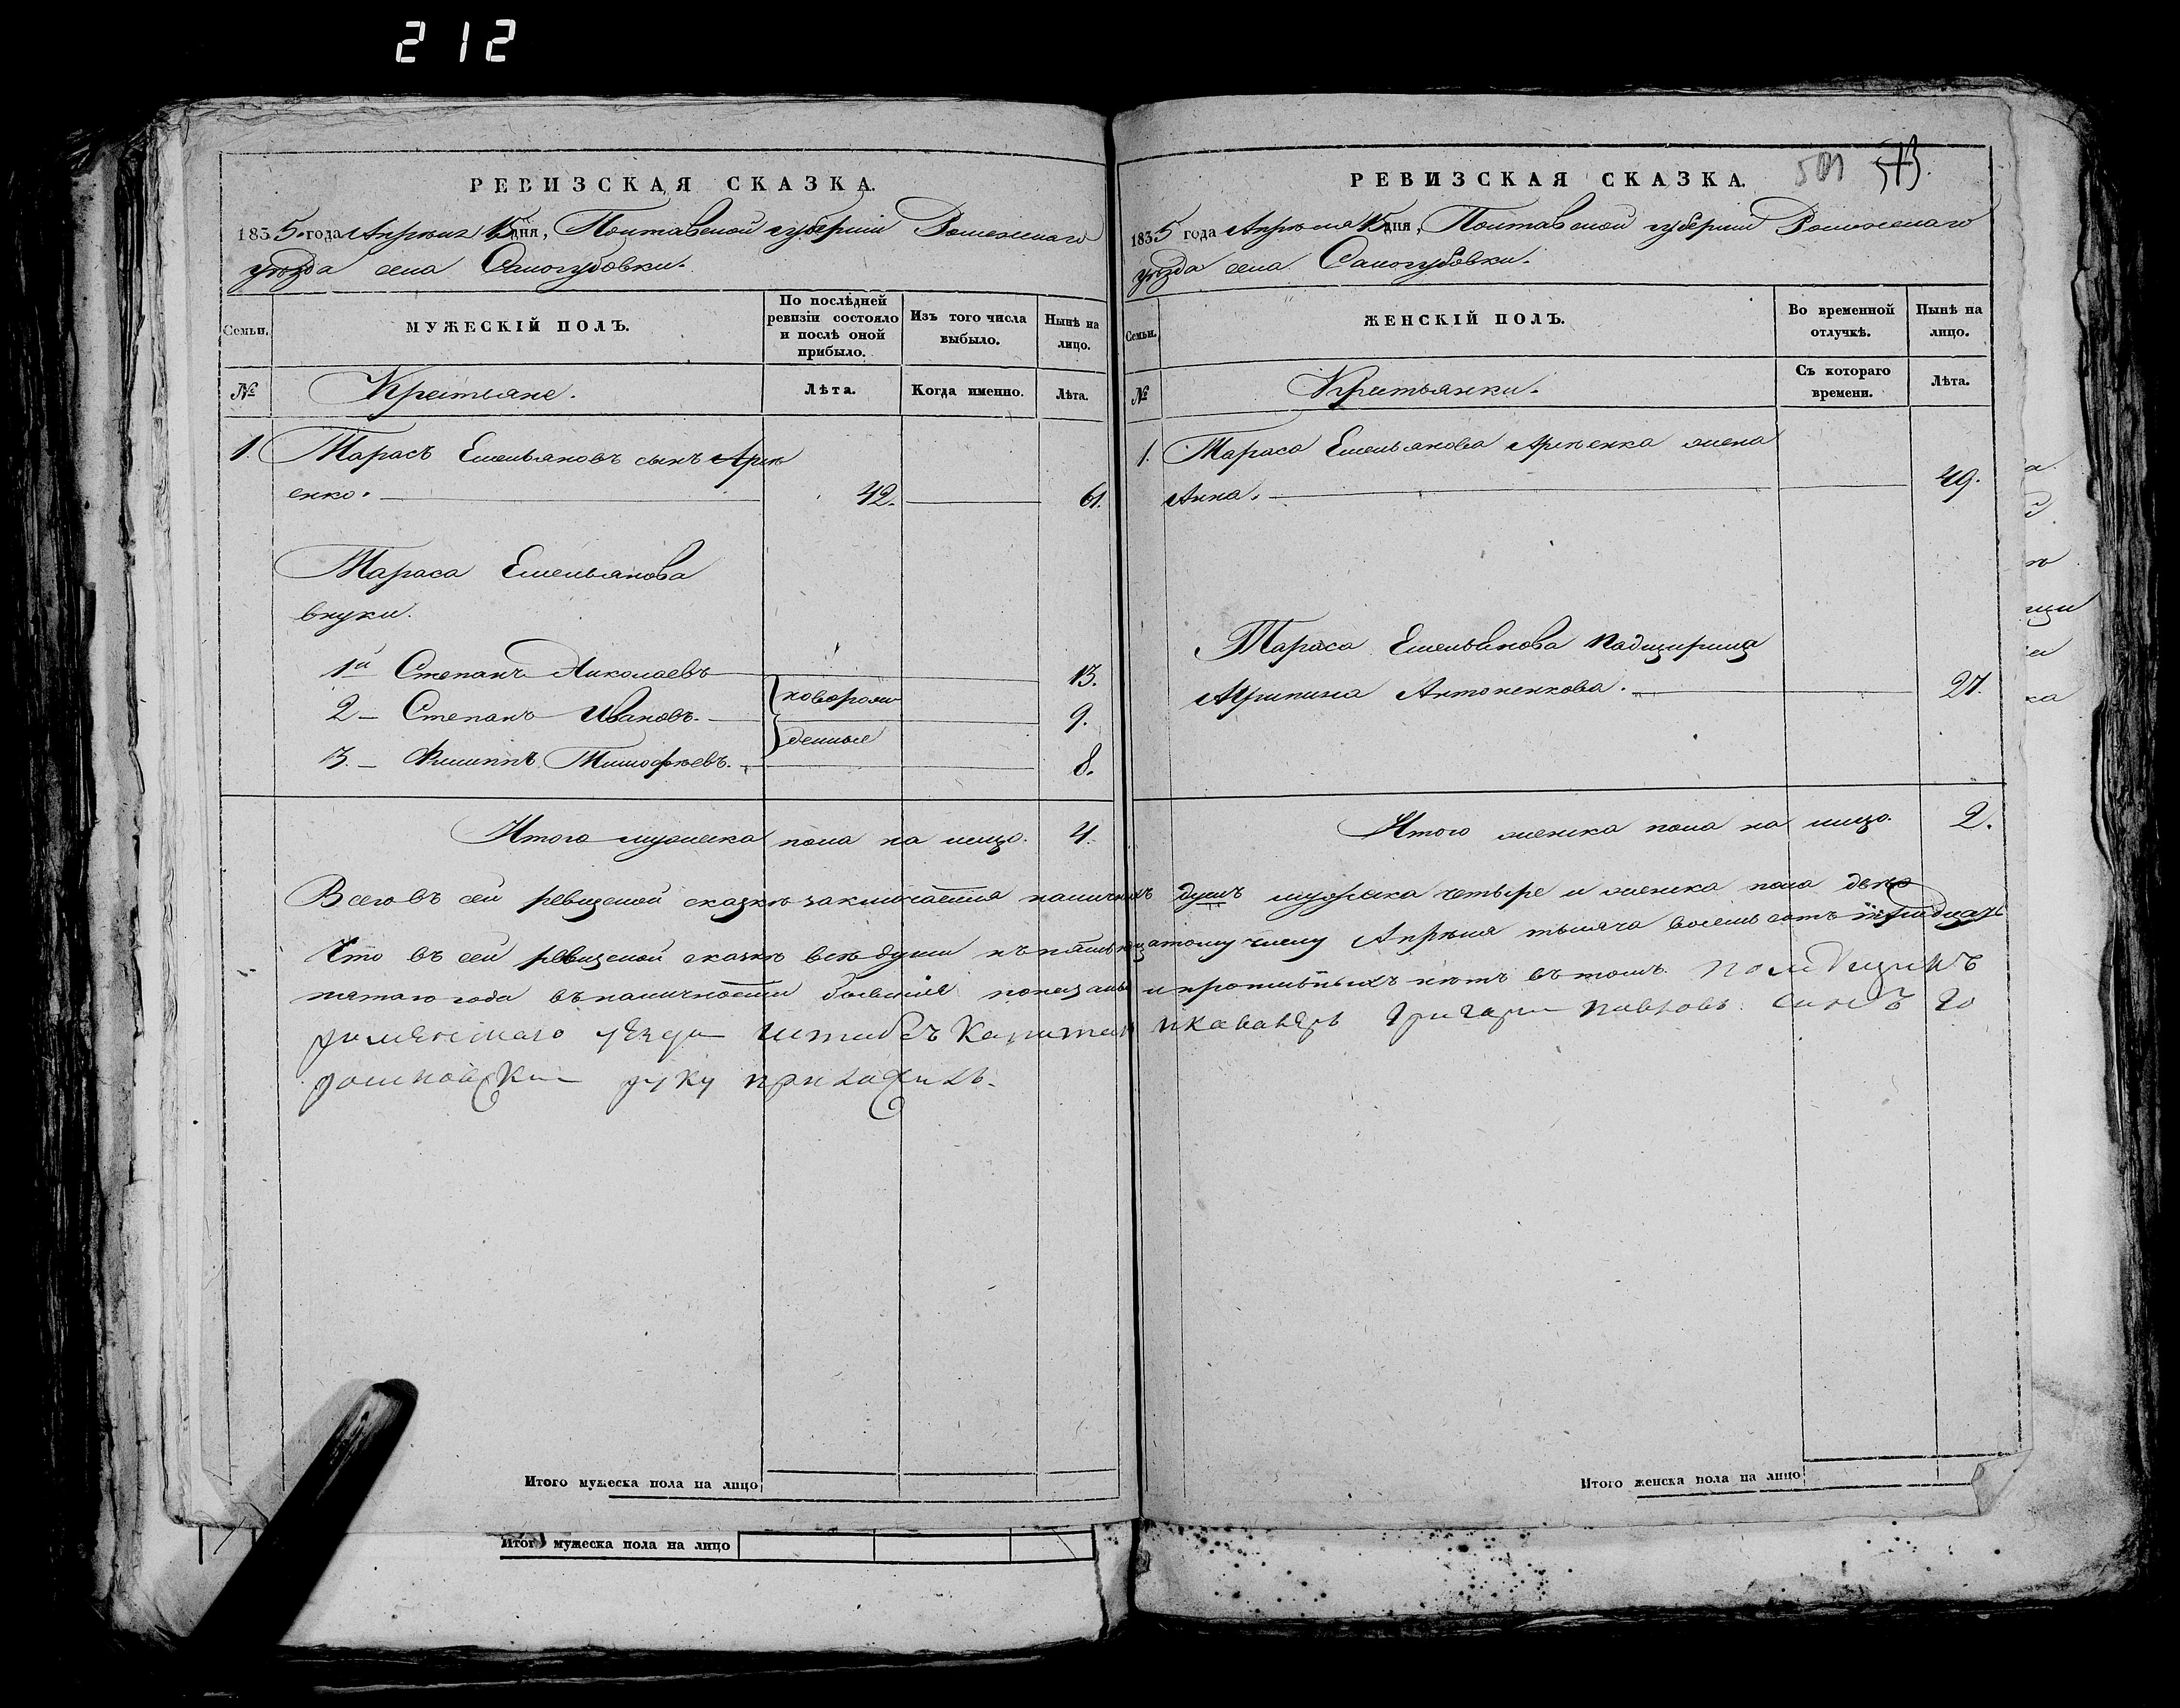 212
РЕВИЗСКАЯ СКАЗКА.
1835 года Апрѣля 15 дня, Полтавской губерніи Роменскаго
уѣзда села Самогубовки.
Семьи.
МУЖЕСКІЙ ПОЛЪ.
По послѣдней
ревизіи состояло
и послѣ оной
прибыло.
Изъ того числа
выбыло.
Нынѣ на
лицо.
№
Крестьяне.
Лѣта.
Когда именно.
Лѣта.
1. Тарасъ Емельяновъ сынъ
енко. 42. 61.
Тараса Емельянова
внуки.
1й Степанъ Николаевъ 13.
новорож
2 – Степанъ Ивановъ. 9.
денные
3. – Филиппъ Тимофѣевъ. 8.
Итого мужеска пола на лицо. 4.
Итого мужеска пола на лицо
Итог мужеска пола на лицо
501 513.
РЕВИЗСКАЯ СКАЗКА.
1835 года Апрѣля 15 дня, Полтавской губерніи Роменскаго
уѣзда села Самогубовки.
Семьи.
ЖЕНСКІЙ ПОЛЪ.
Во временной
отлучкѣ.
Нынѣ на
лицо.
№
Крестьянки.
Съ котораго
времени.
Лѣта.
1. Тараса Емельянова жена
Анна. 49.
Тараса Емельянова падщирица
Агрипина Антоненкова. 27.
Итого женска пола на лицо. 2.
Всего въ сей ревизской сказкѣ заключается наличныхъ душъ мужеска четыре и женска пола двѣ
Что въ сей ревизской сказкѣ всѣ души къ пятьнадцатому числу Апрѣля тысяча восемь сотъ тридцать
пятаго года въ наличности бывшіе показаны и прописныхъ нѣтъ въ томъ помѣщикъ
роменскаго уезда штабсъ Капитан и кавалеръ Григори Павловъ синъ
руку приложилъ.
Итого женска пола на лицо